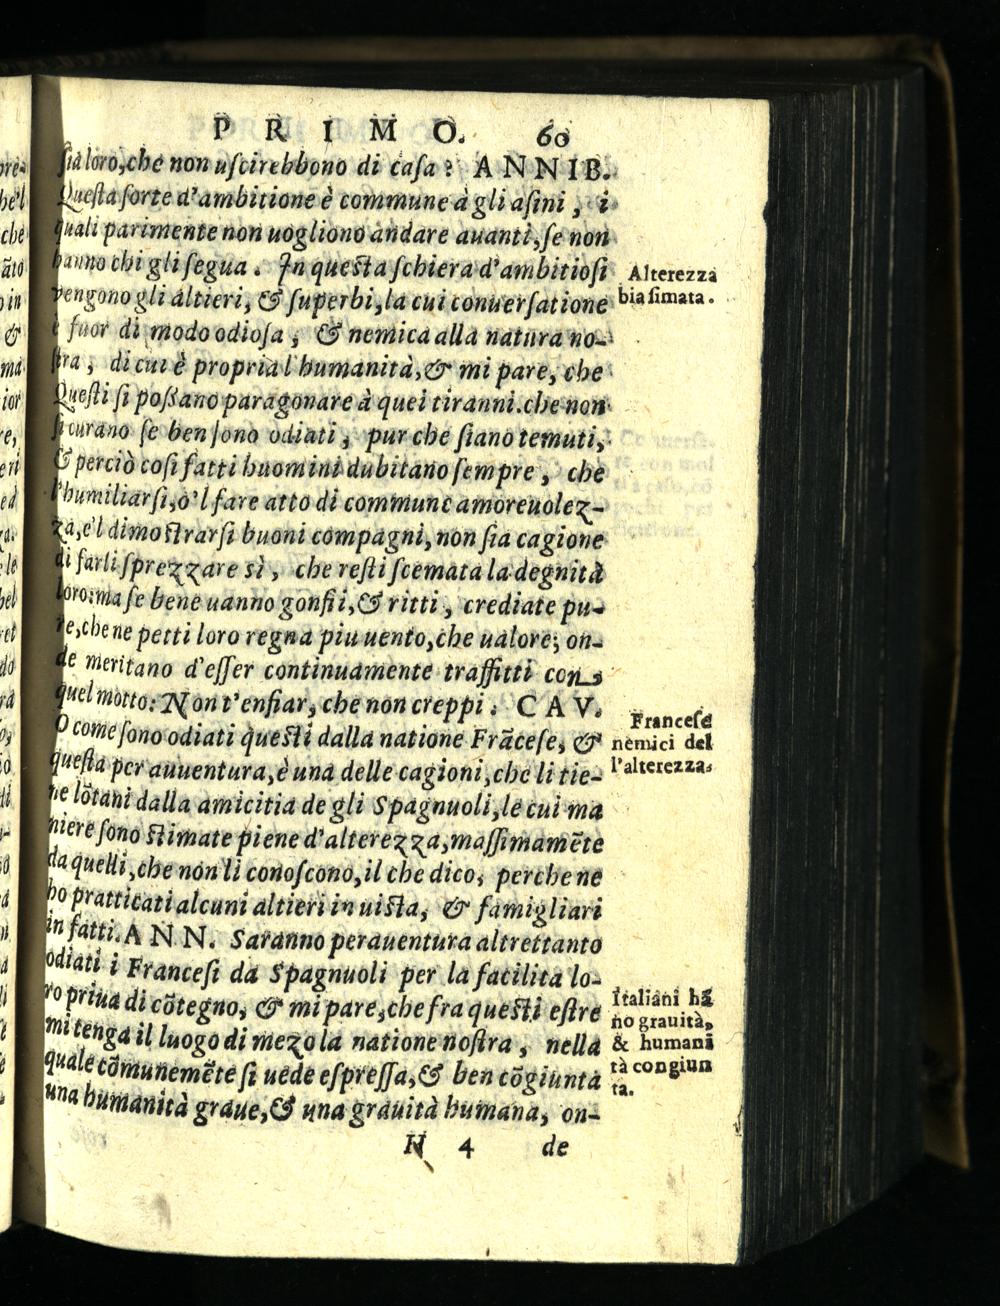 PRIMO. 60
ſia loro, che non uſcirebbono di caſa? ANNIB.
Queſta ſorte d'ambitione è commune à gli aſini, i
quali parimente non uogliono andare auanti, ſe non
hanno chi gli ſegua. In queſta ſchiera d'ambitioſi
vengono gli altieri, & ſuperbi, la cui conuerſatione
è fuor di modo odioſa, & nemica alla natura no-
ſtra, di cui è propria l'humanità, & mi pare, che
Queſti ſi poſſano paragonare à quei tiranni. che non
ſi curano ſe ben ſono odiati, pur che ſiano temuti,
& perciò coſi fatti huomini dubitano ſempre, che
l'humiliarſi, o'l fare atto di commune amoreuolez-
za, e'l dimoſtrarſi buoni compagni, non ſia cagione
di farli ſprezzare sì, che reſti ſcemata la degnità
loro: ma ſe bene uanno gonfii, & ritti, crediate pu-
re, che ne petti loro regna piu uento, che ualore; on-
de meritano d'eſſer continuamente traffitti con
quel motto: Non t'enfiar, che non creppi. CAV.
O come ſono odiati queſti dalla natione Frãceſe, &
queſta per auuentura, è una delle cagioni, che li tie-
ne lõtani dalla amicitia de gli Spagnuoli, le cui ma
niere ſono ſtimate piene d'alterezza, maſſimamẽte
da quelli, che non li conoſcono, il che dico, perche ne
ho pratticati alcuni altieri in uiſta, & famigliari
in fatti. ANN. Saranno perauentura altrettanto
odiati i Franceſi da Spagnuoli per la facilita lo-
ro priua di cõtegno, & mi pare, che fra queſti eſtre
mi tenga il luogo di mezo la natione noſtra, nella
quale cõmunemẽte ſi uede eſpreſſa, & ben cõgiunta
una humanità graue, & una grauità humana, on-
H 4 de
Alterezza
biaſimata.
Franceſe
nemici del
l'alterezza.
Italiani hã
no grauità,
& humani
tà congiun
ta.